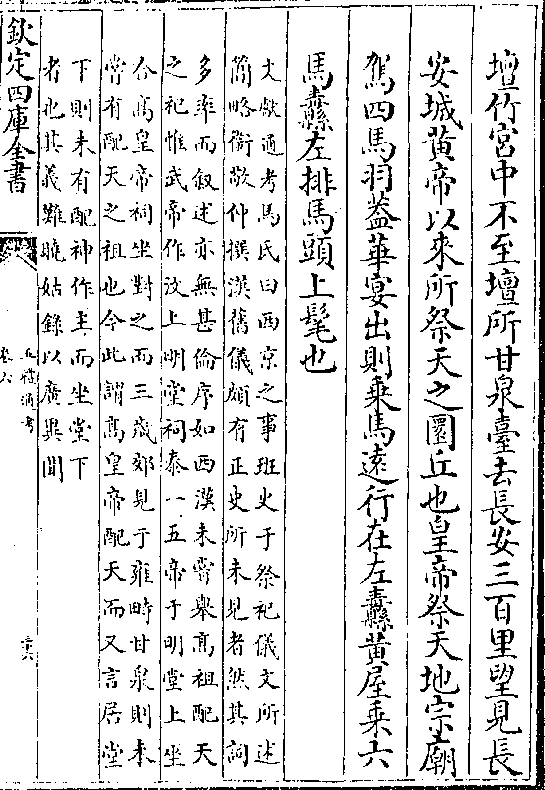 壇竹宮中不至壇所甘泉臺去長安三百里望見長
安城黃帝以來所祭天之圜丘也皇帝祭天地宗廟
駕四馬羽蓋華宴出則乘馬遠行在左纛黃屋乘六
馬纛左排馬頭上髦也
文獻通考馬氏曰西京之事班史于祭祀儀文所述
簡略衛敬仲撰漢舊儀頗有正史所未見者然其詞
多率而叙述亦無甚倫序如西漢未嘗舉高祖配天
之祀惟武帝作汶上明堂祠泰一五帝于明堂上坐
合高皇帝祠坐對之而三歲郊見于雍畤甘泉則未
嘗有配天之祖也今此謂高皇帝配天而又言居堂
下則未有配神作主而坐堂下
者也其義難曉姑錄以廣異聞
欽定四庫全書
五禮通考
卷六
三六